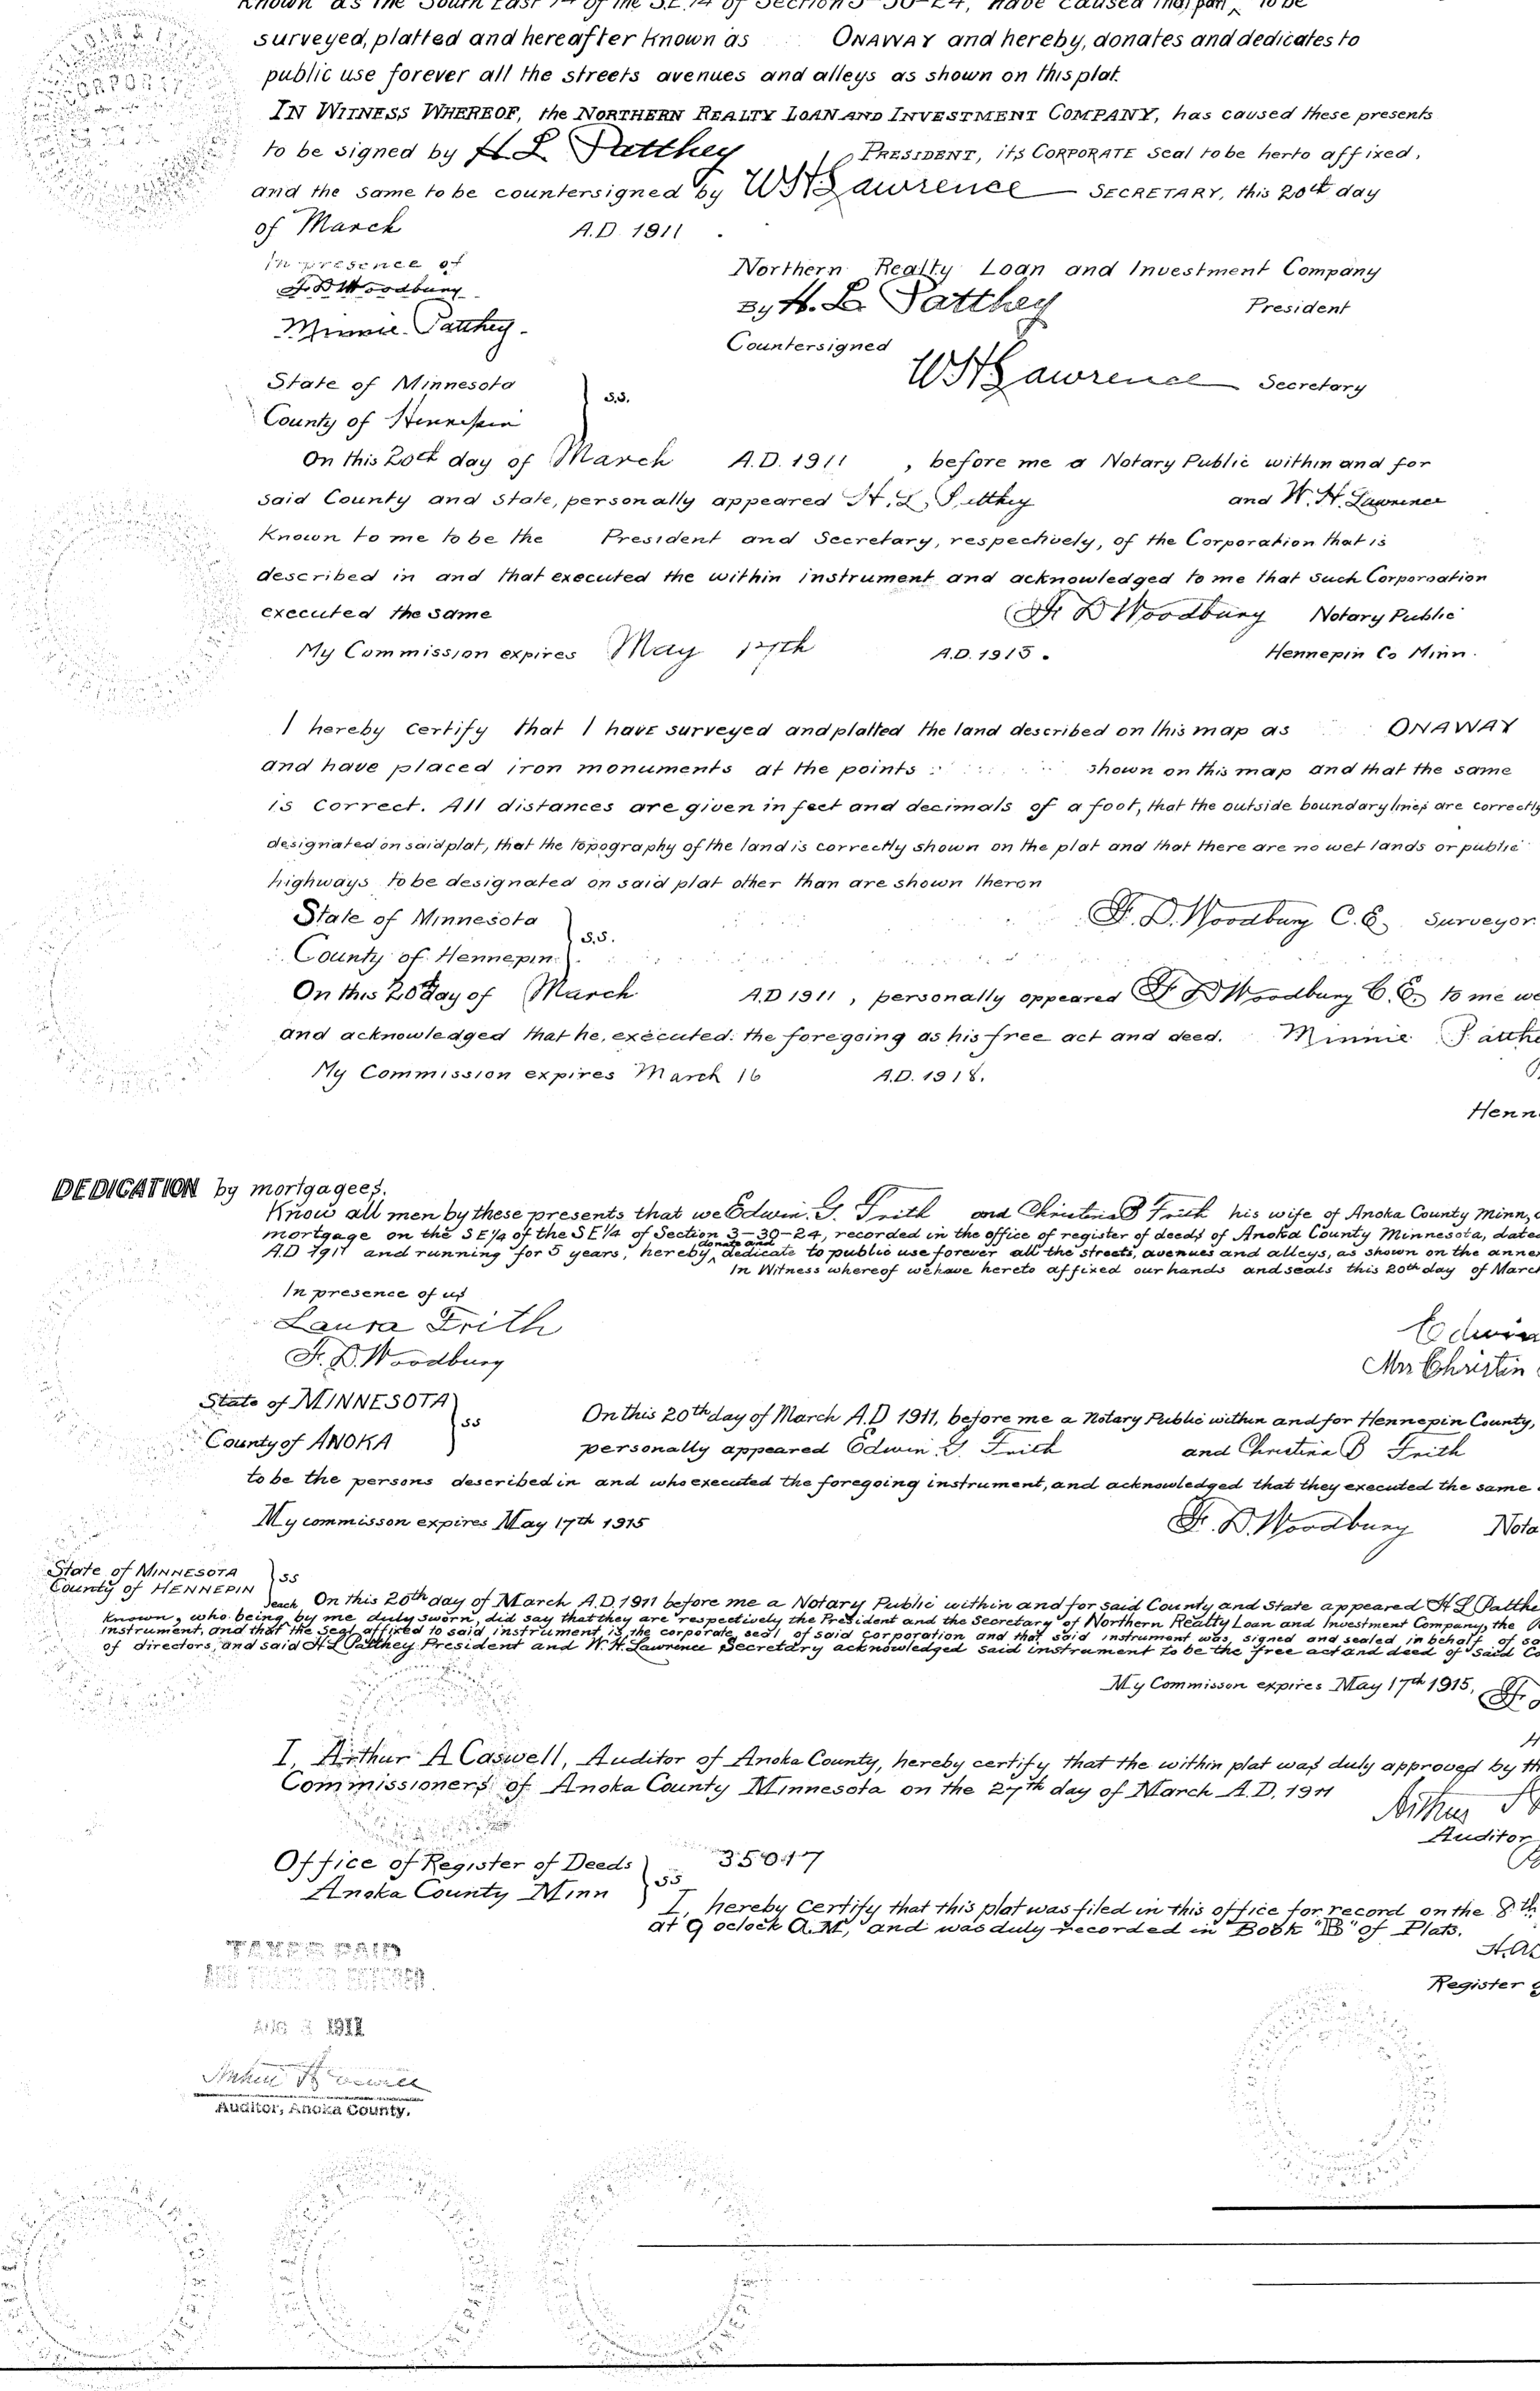 Known as the South East 1/4 of the S.E. 1/4 of Section 3-30-24, have caused that part ‸ to be
surveyed, platted and hereafter known as ONAWAY and hereby, donates and dedicates to
public use forever all the streets avenues and alleys as shown on this plat.
IN WITNESS WHEREOF, the NORTHERN REALTY LOAN AND INVESTMENT COMPANY, has caused these presents
to be signed by H. L. Patthey PRESIDENT, its CORPORATE seal to be herto affixed,
and the same to be countersigned by W H Lawrence SECRETARY, this 20th day
of March A.D. 1911
In presence of
F. D Woodbury
Minnie Patthey
Northern Realty Loan and Investment Company
By H. L. Patthey President
Countersigned
W H Lawrence Secretary
State of Minnesota
S.S.
County of Hennepin
On this 20th day of March A.D. 1911, before me a Notary Public within and for
said County and State, personally appeared H. L. Patthey and W. H. Lawrence
Known to me to be the President and Secretary, respectively, of the Corporation that is
described in and that executed the within instrument and acknowledged to me that such Corporoation
executed the same F. D Woodbury Notary Public
My Commission expires May 17th A.D. 1915. Hennepin Co Minn.
I hereby certify that I have surveyed and platted the land described on this map as ONAWAY
and have placed iron monuments at the points shown on this map and that the same
is correct. All distances are given in feet and decimals of a foot, that the outside boundary lines are correctly
designated on said plat, that the topography of the land is correctly shown on the plat and that there are no wet lands or public
highways to be designated on said plat other than are shown theron
State of Minnesota
S.S.
F. D. Woodbury C. E. Surveyor.
County of Hennepin
On this 20th day of March A.D 1911, personally appeared F D Woodbury C. E. to me we
and acknowledged that he, executed the foregoing as his free act and deed. Minnie Patthe
My Commission expires March 16 A.D. 1918.
Henn
DEDICATION by mortgagees.
Know all men by these presents that we Edwin. G. Frith and Christina B Frith his wife of Anoka County Minn,
mortgage on the SE 1/4 of the SE 1/4 of Section 3-30-24, recorded in the office of register of deeds of Anoka County Minnesota, date
A.D 1911 and running for 5 years, hereby ‸ donate and dedicate to public use forever all the streets, avenues and alleys, as shown on the anne
In Witness whereof we have hereto affixed our hands and seals this 20th day of Marc
In presence of us
Laura Frith
F. D. Woodbury
Edwin
Mrs Christin
State of MINNESOTA
ss
County of ANOKA
On this 20th day of March A.D 1911, before me a Notary Public within and for Hennepin County,
personally appeared Edwin. G. Frith and Christina B Frith
to be the persons described in and who executed the foregoing instrument, and acknowledged that they executed the same
My commisson expires May 17th 1915 F. D. Woodbury Nota
State of MINNESOTA
ss
County of HENNEPIN
On this 20th day of March A.D. 1911 before me a Notary Public within and for said County and State appeared H L Patthe
known, who being each by me duly sworn, did say that they are respectively the President and the Secretary of Northern Realty Loan and Investment Company, the
instrument, and that the seal affixed to said instrument, is the corporate seal of said corporation and that said instrument was signed and sealed in behalf of
of directors, and said H L Patthey President and W. H. Lawrence Secretary acknowledged said instrument to be the free act and deed of said Co
My Commisson expires May 17th 1915,
I, Arthur A Caswell, Auditor of Anoka County, hereby certify that the within plat was duly approved by th
Commissioners of Anoka County Minnesota on the 27th day of March A.D. 1911
Arthur
Auditor
Office of Register of Deeds 35047
ss
Anoka County Minn
I, hereby certify that this plat was filed in this office for record on the 8th
at 9 oclock A.M, and was duly recorded in Book "B" of Plats.
Register
Auditor, Anoka County.